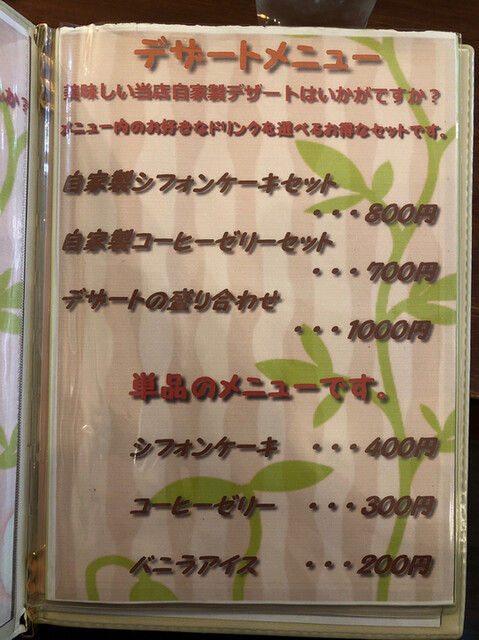 デザートメニュー
美味しい当店自家製デザートはいかがですか？
メニュー内のお好きなドリンクを選べるお得なセットです。
自家製シフォンケーキセット
・・・800円
自家製コーヒーゼリーセット
・・・700円
デザートの盛り合わせ
・・・1000円
単品のメニューです。
シフォンケーキ ・・・400円
コーヒーゼリー ・・・300円
バニラアイス ・・・200円